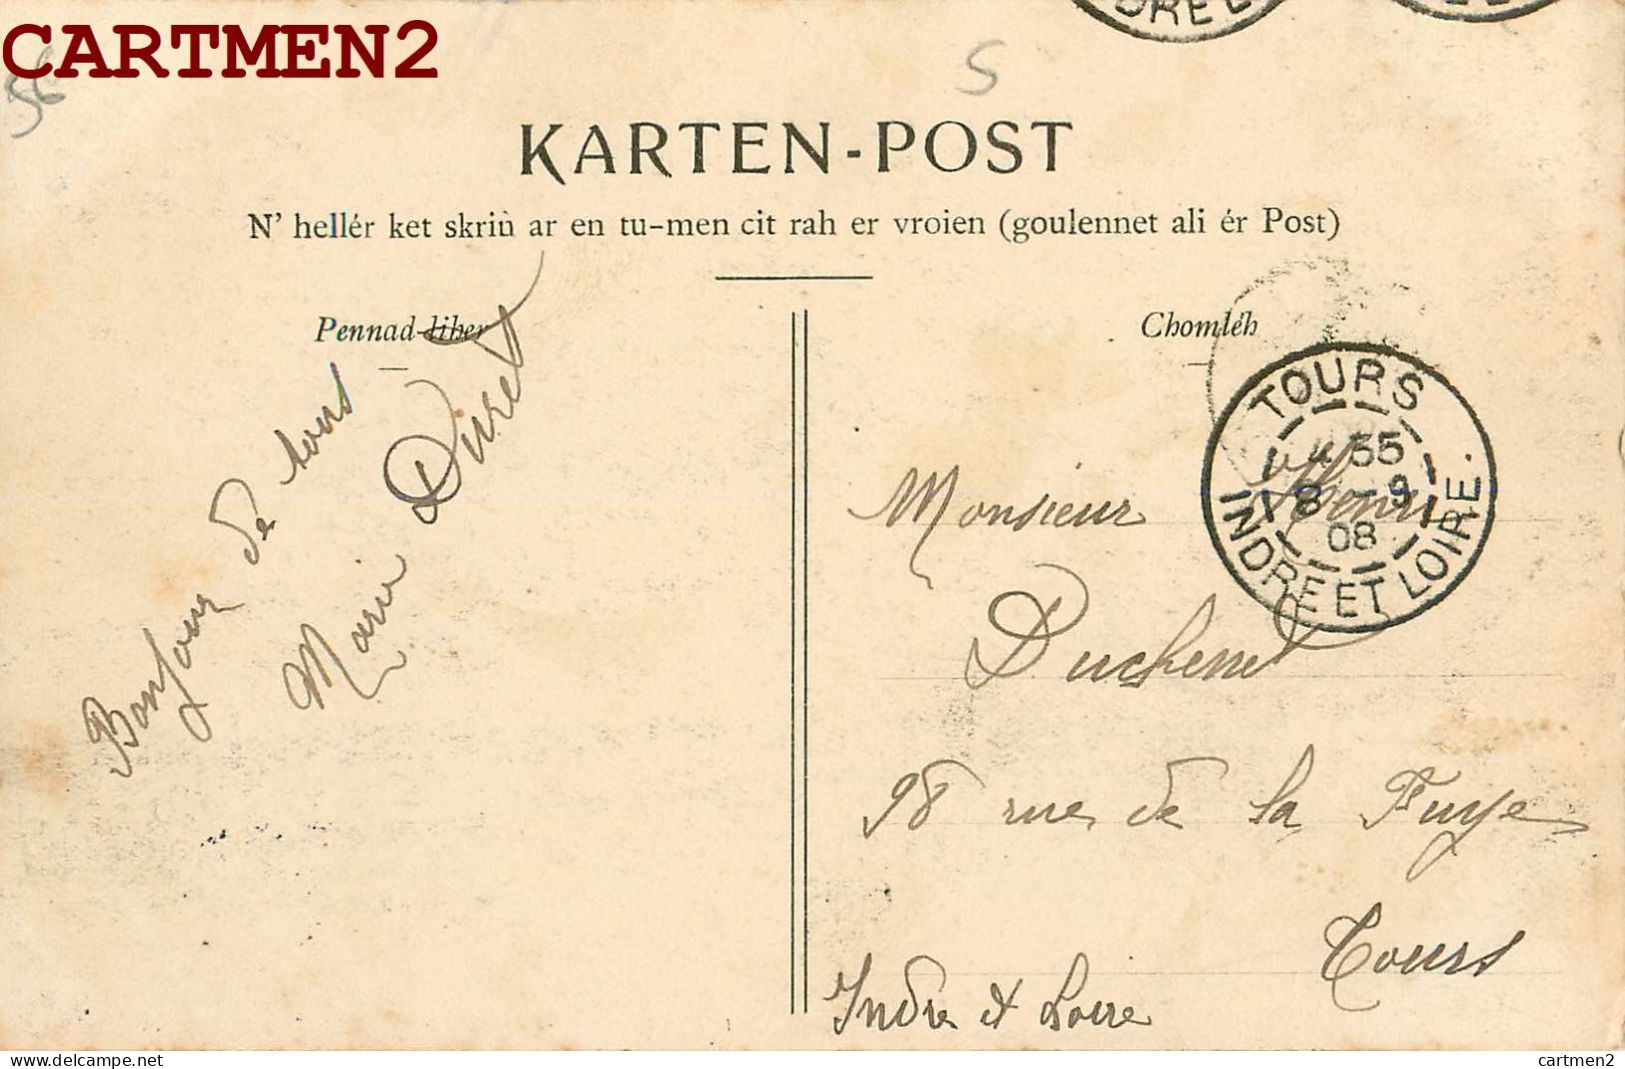 CARTMEN2
56
S
KARTEN-POST
N' hellér ket skriù ar en tu-men cit rah er vroien (goulennet ali ér Post)
Pennad-liher
Chomléh
Bonjour de tous
Marie Duret
TOURS
4 55
8 -9
08
INDRE ET LOIRE.
Monsieur Henri
Duchenet
98 rue de la Fuye
Tours
Indre et Loire
cartmen2.delcampe.net
cartmen2